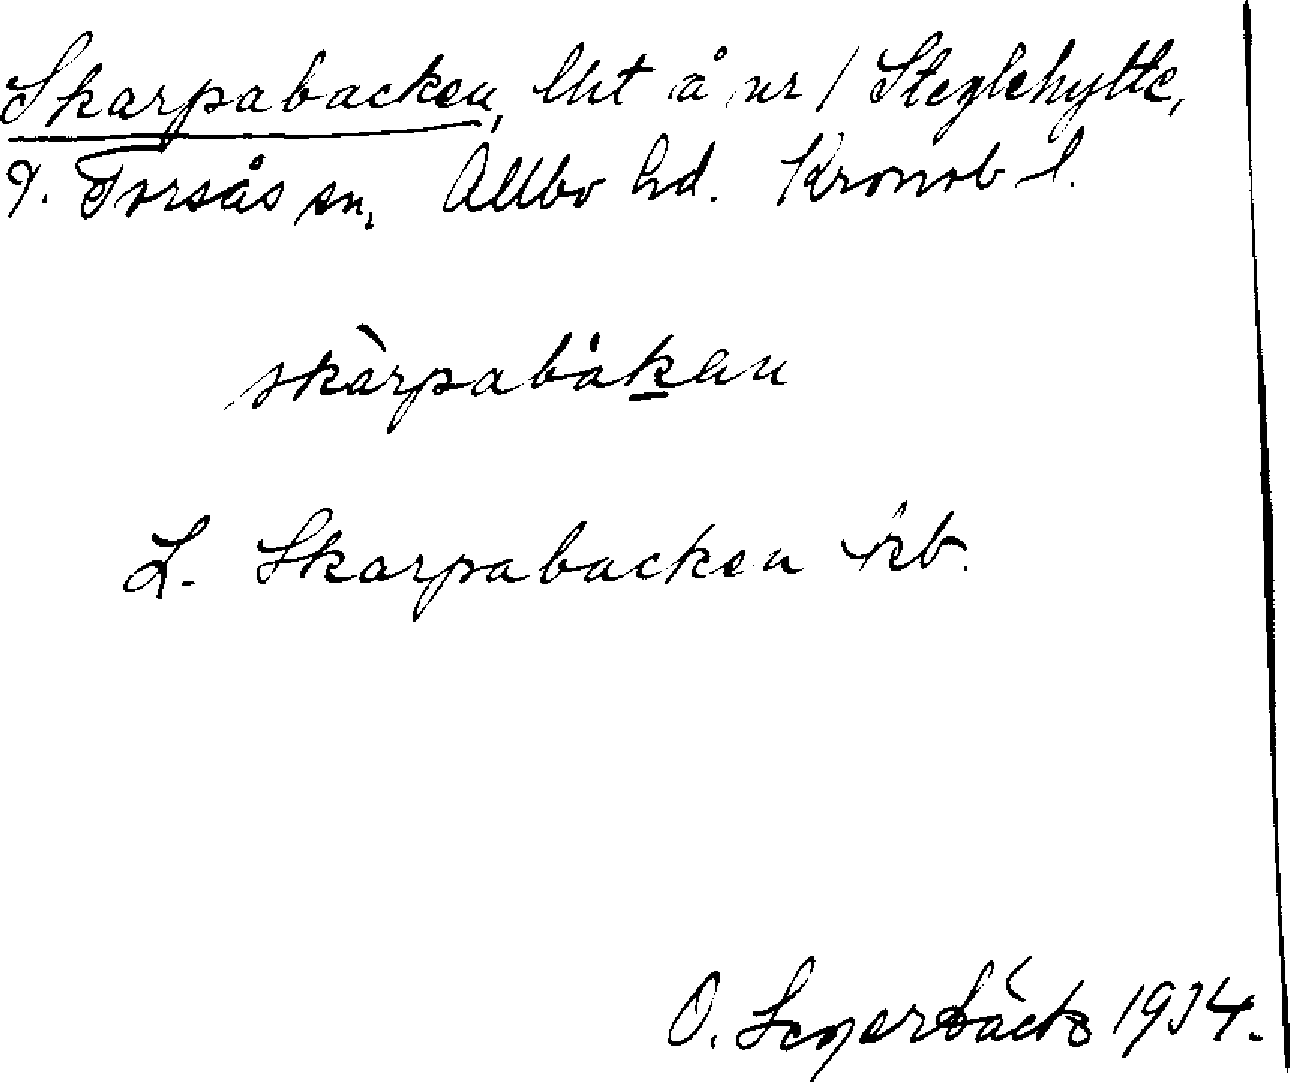 Skarpabacken, lht å nr 1 Steglehytte,
V. Torsås sn, Allbo hd. Kronob l.
skàrpabákan
L. Skarpabacken kb.
O. Segerbäck 1934.